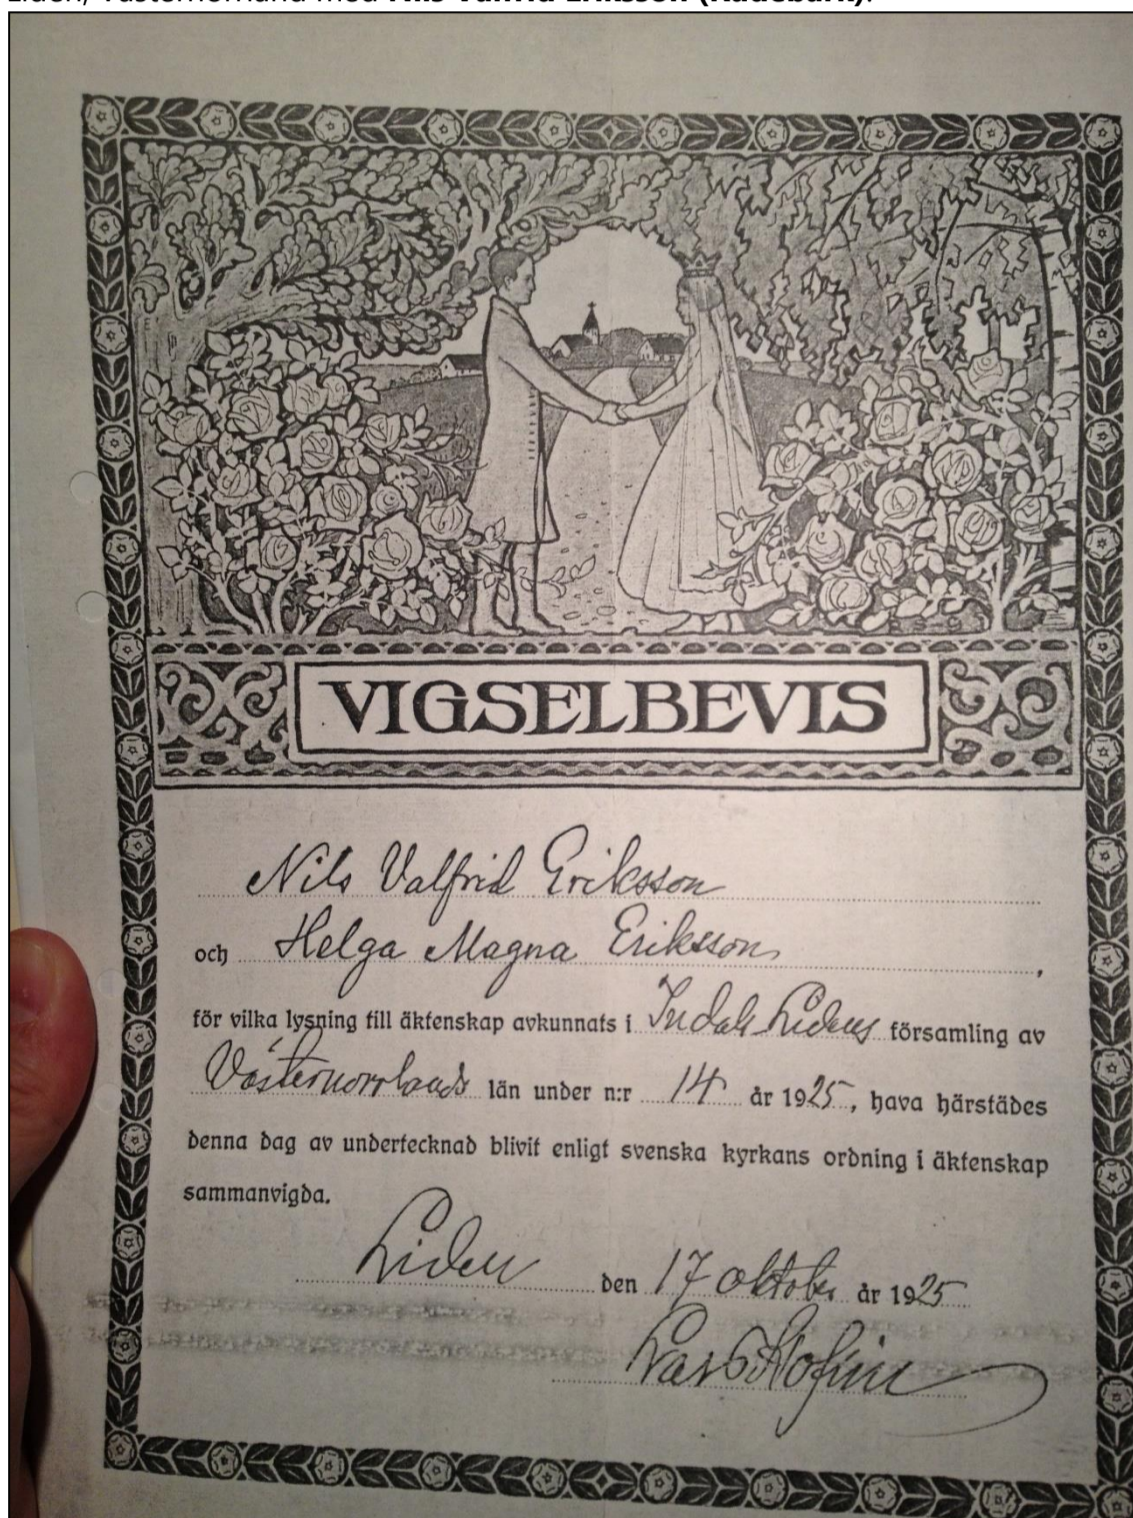 Liden, Västernorrland med Nils Valfrid Eriksson
VIGSELBEVIS
Nils Valfrid Eriksson
och Helga Magna Eriksson,
för vilka lysning till äktenskap avkunnats i Indals Lidens församling av
Västernorrlands län under n:r 14 år 1925, hava härstädes
denna dag av undertecknad blivit enligt svenska kyrkans ordning i äktenskap
sammanvigda.
Liden den 17 oktober år 1925